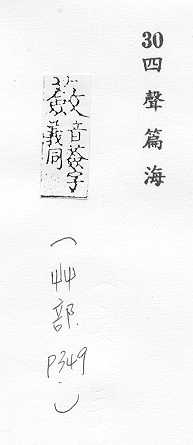 30 四聲篇海
音發字
義同
(艸部. P349.)